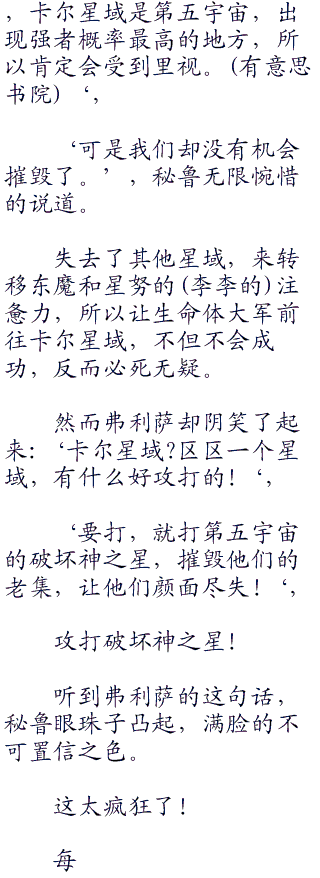 ，卡尔星域是第五宇宙，出
现强者概率最高的地方，所
以肯定会受到里视。(有意思
书院)‘，
‘可是我们却没有机会
摧毁了。’，秘鲁无限惋惜
的说道。
失去了其他星域，来转
移东魔和星努的(李李的)注
惫力，所以让生命体大军前
往卡尔星域，不但不会成
功，反而必死无疑。
然而弗利萨却阴笑了起
来：‘卡尔星域?区区一个星
域，有什么好攻打的！‘，
‘要打，就打第五宇宙
的破坏神之星，摧毁他们的
老集，让他们颜面尽失！‘，
攻打破坏神之星！
听到弗利萨的这句话，
秘鲁眼珠子凸起，满脸的不
可置信之色。
这太疯狂了！
每